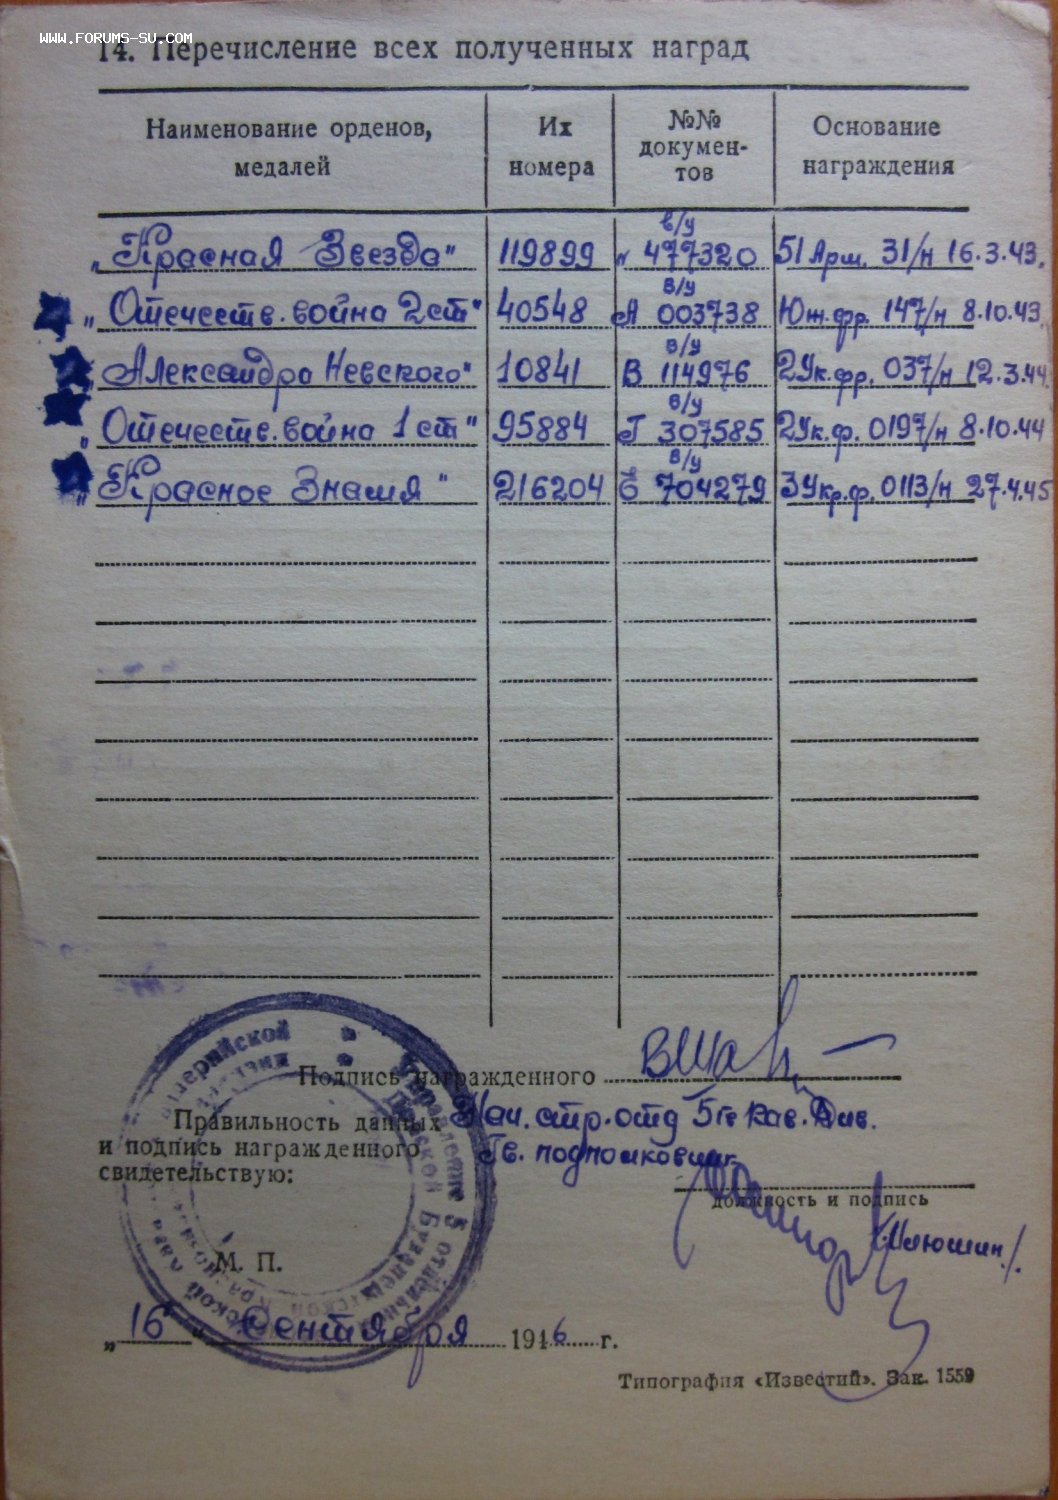 WWW.FORUMS-SU.COM
14. Перечисление всех полученных наград
Наименование орденов, медалей
Их номера
№№ докумен-тов
Основание награждения
„Красная Звезда" 119899 в/у 477320 51 Арм. 31/н 16.3.43.
„Отечеств. война 2 ст" 40548 в/у А 003738 Юж.фр. 147/н 8.10.43.
„Александра Невского" 10841 в/у В 114976 2Ук.фр. 037/н 12.3.44.
„Отечеств. война 1 ст" 95884 в/у Г 307585 2Ук.ф. 0197/н 8.10.44
„Красное Знамя" 216204 в/у Е 704279 3Укр.ф. 0113/н 27.4.45
Подпись награжденного
Правильность данных
и подпись награжденного
свидетельствую:
Нач. стр. отд 5 гв кав. Див.
Гв. подполковник
должность и подпись
М. П.
„16" Сентября 1946 г.
Типография «Известий». Зак. 1559